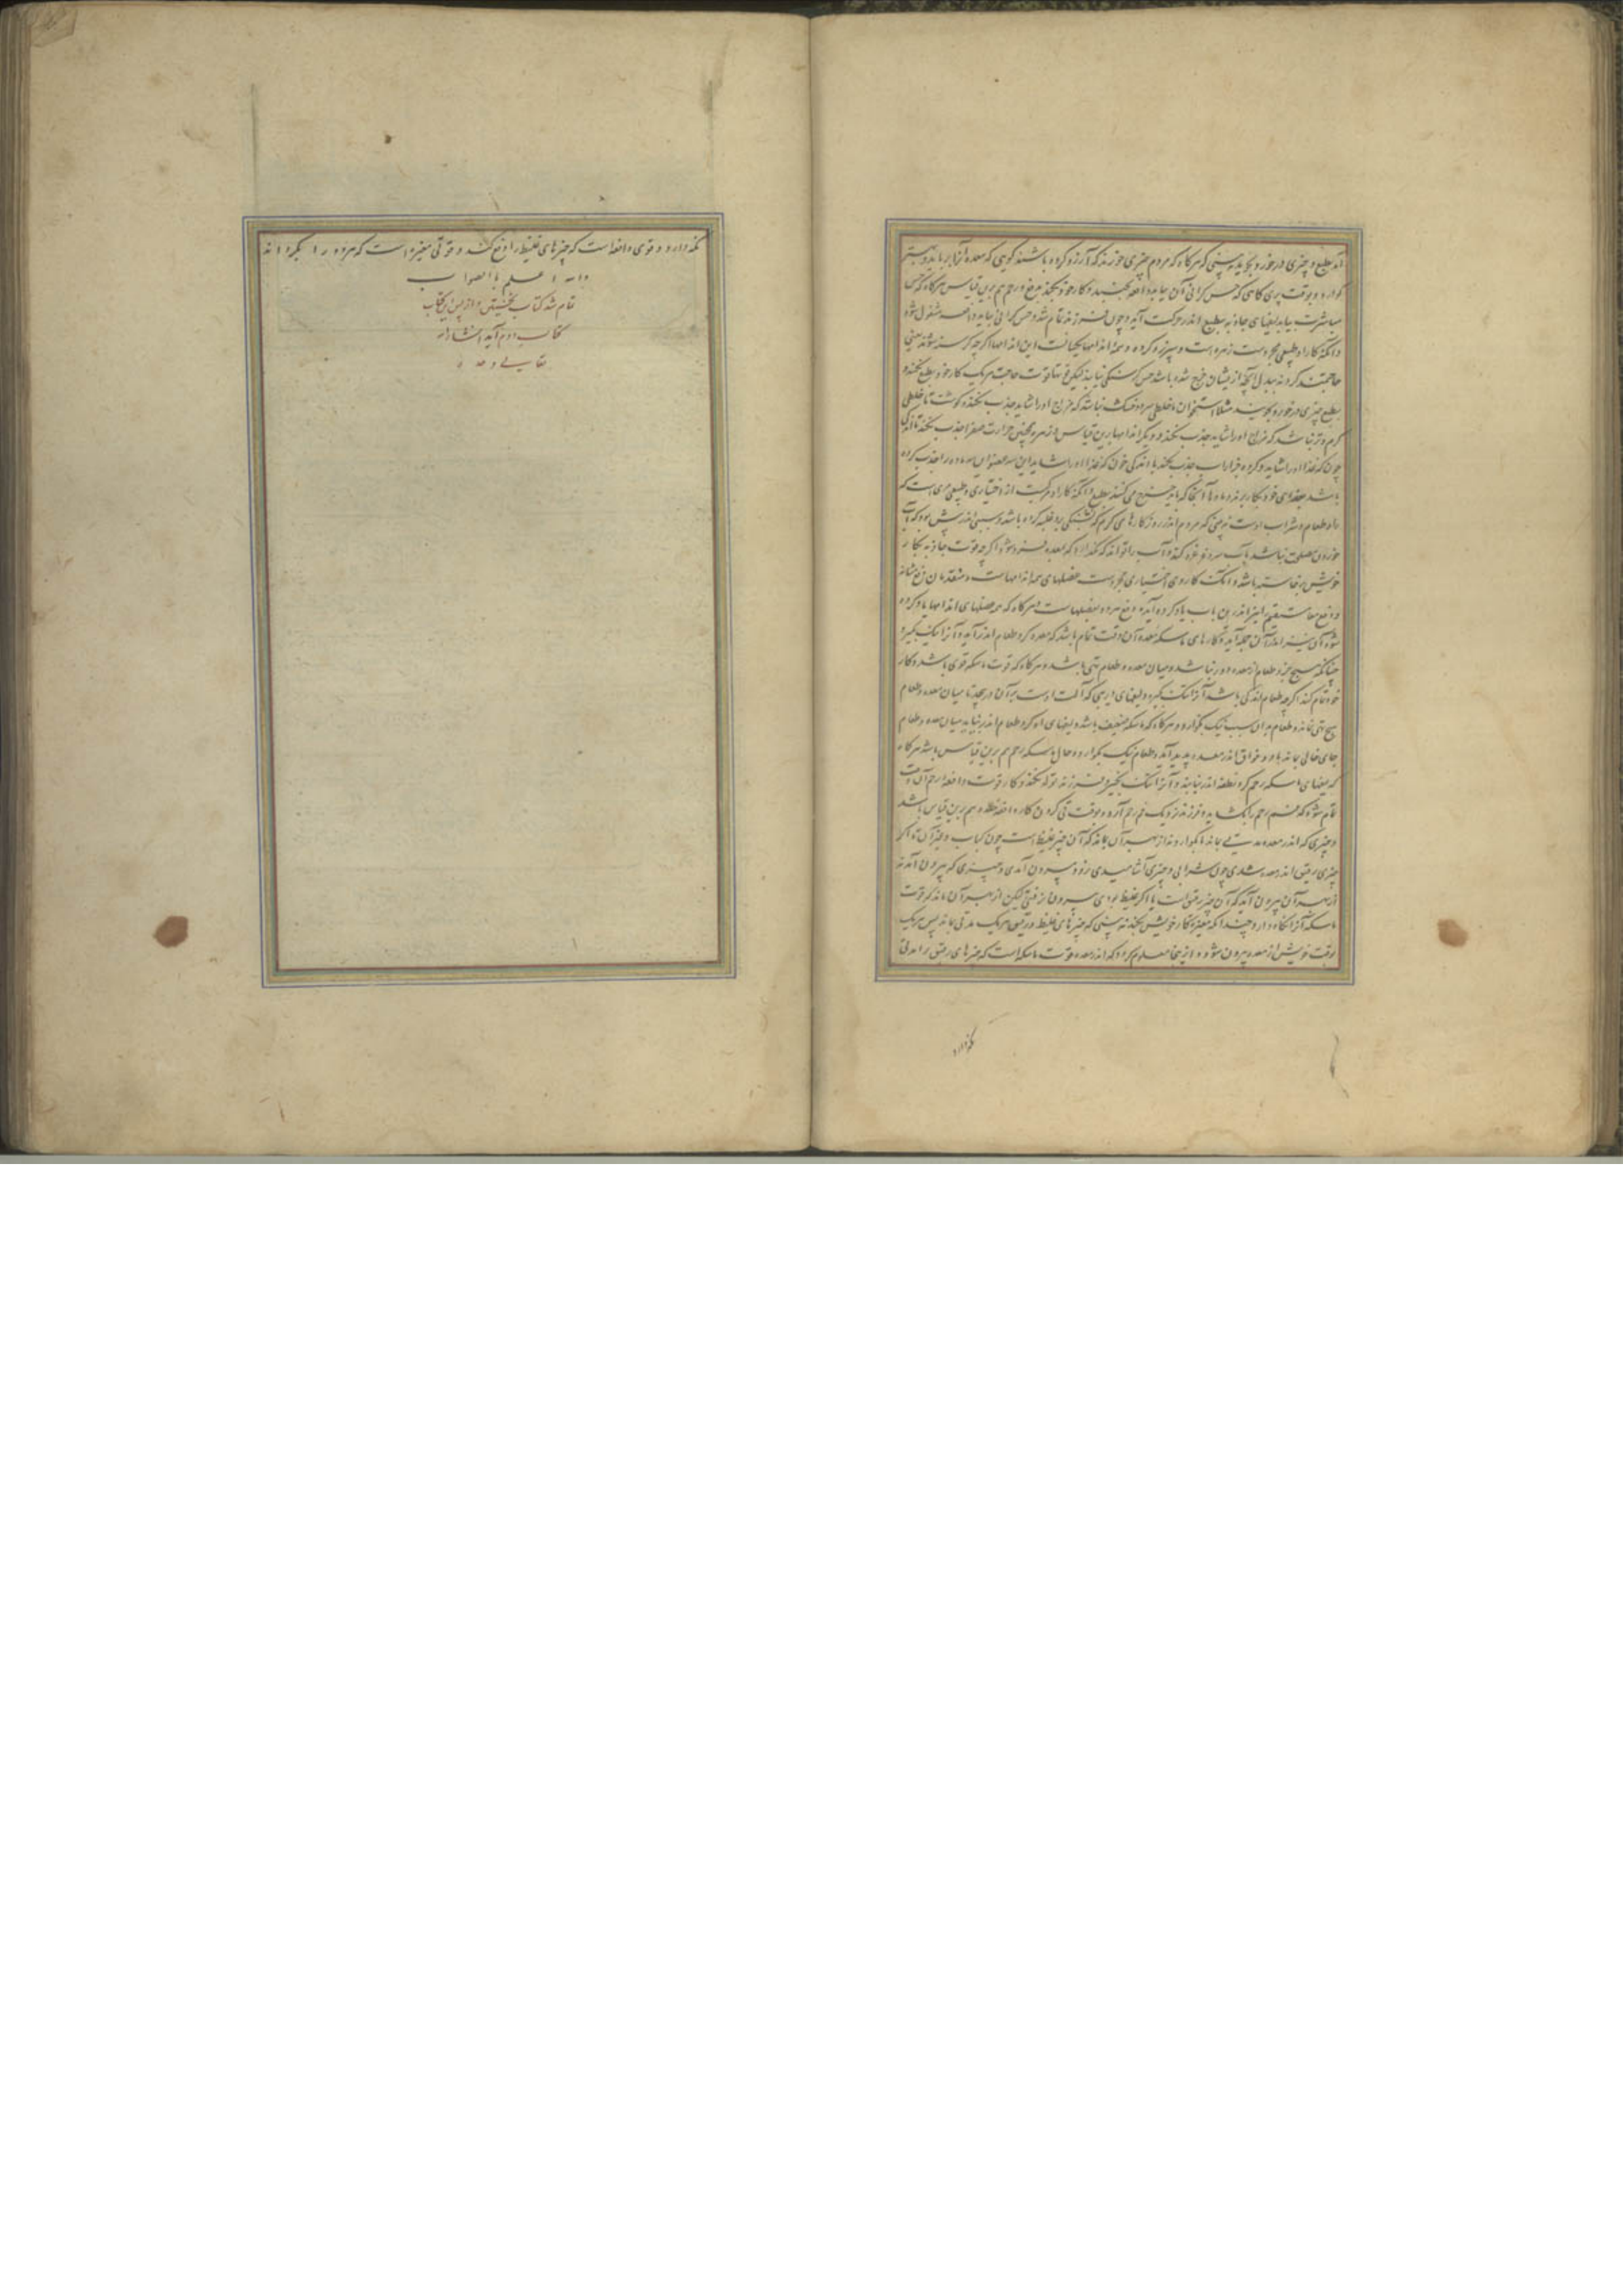 آید بطبع و چیزی در خورد بجوید نه بینی که هرگاه که مردم چیزی خورند که آرزو کرده باشند گویی که معده آنرا برباید و بهتر
گوارد و بوقت پری گاهی که حس گرانی آن بیابد دافعه بجنبد و کار خود بکند و رحم هم برین قیاس هرگاه که حس
مباشرت بیابد لیفهای جاذبه بطبع اندر حرکت آید و چون فرزند تمام شد و حس گرانی بیابد دافعه مشغول شود
و آنکه کار او طبیعی مجرد است زهره است و سپرز و گرده و همه اندامها یکسانست این اندامها اگرچه گرسنه شوند یعنی
حاجتمند گردند ببدل آنچه از یشان خرج شده باشد حس گرسنگی نیابند لیکن قوت حاجت هر یک کار خود بطبع بکند و
بطبع چیزی در خورد بجویند مثلا استخوان تا خلطی سرد و خشک نباشد که مزاج او را شاید جذب نکند و گوشت تا خلطی
گرم و تر نباشد که مزاج او را شاید جذب نکند و دیگر اندامها برین قیاس و زهره همچنین حرارت صفرا جذب نکند تا اندکی
چون که غذا او را شاید و گرده جذب نکند تا اندکی خون که غذا او را شاید این سه عضو این سه ماده را جذب کرده
باشد بغذای خود بکار برند و مادها آنجا که باید خرج می کنند بطبع و آنکه کار او مرکبست از اختیاری و طبیعی مری است که
راه طعام و شراب اوست نه بینی که مردم اندر روزگارهای گرم که تشنگی برو غلبه کرده باشد و سببی اندر پیش بود که آب
خوردن مصلحت نباشد بآب سرد غرغره کند و آب را تواند که نگذارد که بمعده فرود شود اگرچه قوت جاذبه بکار
خویش برخاسته باشد و آنک کار وی اختیاری مجرد است عضلهای همه اندامهاست و منفعت آن دفع مثانه
و دفع معا مستقیم نیز اندرین باب یاد کرده آید و دفع هر دو بعضلهاست و هرگاه که همه عضلهای اندامها یاد کرده
شود آن نیز اندر آن جمله آید و کارهای ماسکه معده آن وقت تمام باشد که معده گرد طعام اندر آید و آنرا نیک بگیرد
چنانکه هیچ جزو طعام از معده دور نباشد و میان معده و طعام تهی باشد و هرگاه که قوت ماسکه قوی باشد و کار
خود تمام کند اگرچه طعام اندکی باشد آنرا نیک بگیرد و لیفهای اریبی که آلت اوست بر آن در پیچد تا میان معده و طعام
هیچ تهی نماند و طعام بدان سبب نیک بگوارد و هرگاه که ماسکه ضعیف باشد و لیفهای او گرد طعام اندر نیاید میان معده و طعام
جای خالی بماند باد و قراقر اندر معده پدید آید و طعام نیک نگوارد و حال ماسکه رحم هم برین قیاس باشد هرگاه
که لیفهای ماسکه رحم گرد نطفه اندر نیاید و آنرا نیک نگیرد فرزند تولد نکند و کار قوت دافعه از رحم آن وقت
تمام شود که فم رحم را بگشاید و فرزند نزدیک فم رحم آرد و بوقت قی کردن کار دافعه معده هم برین قیاس باشد
و چیزی که اندر معده مدتی بماند تا بگوارد نه از بهر آن بماند که آن چیز غلیظ است چون کباب و جز آن که اگر
چیزی رقیق اندر معده شدی چون شرابی و چیزی آشامیدی زود بیرون آمدی و چیزی که بیرون آید نه
از بهر آن بیرون آید که آن چیز رقیق است یا اگر غلیظ بودی بیرون نرفتی لیکن از بهر آن ماند که قوت
ماسکه آنرا نگاه دارد چندانکه مغیره کار خویش بکند نه بینی که چیزهای غلیظ و رقیق هر یک مدتی بماند پس هر یک
بوقت خویش از معده بیرون شود و از ینجا معلوم گردد که اندر معده قوت ماسکه است که چیزهای رقیق را مدتی
نگه دارد
نگه دارد و قوی دافعه است که چیزهای غلیظ را دفع کند و قوتی مغیره است که هر دو را بگرداند
والله اعلم بالصواب
تمام شد کتاب نخستین و از پس این کتاب
کتاب دوم آید انشاالله
تعالی وحده